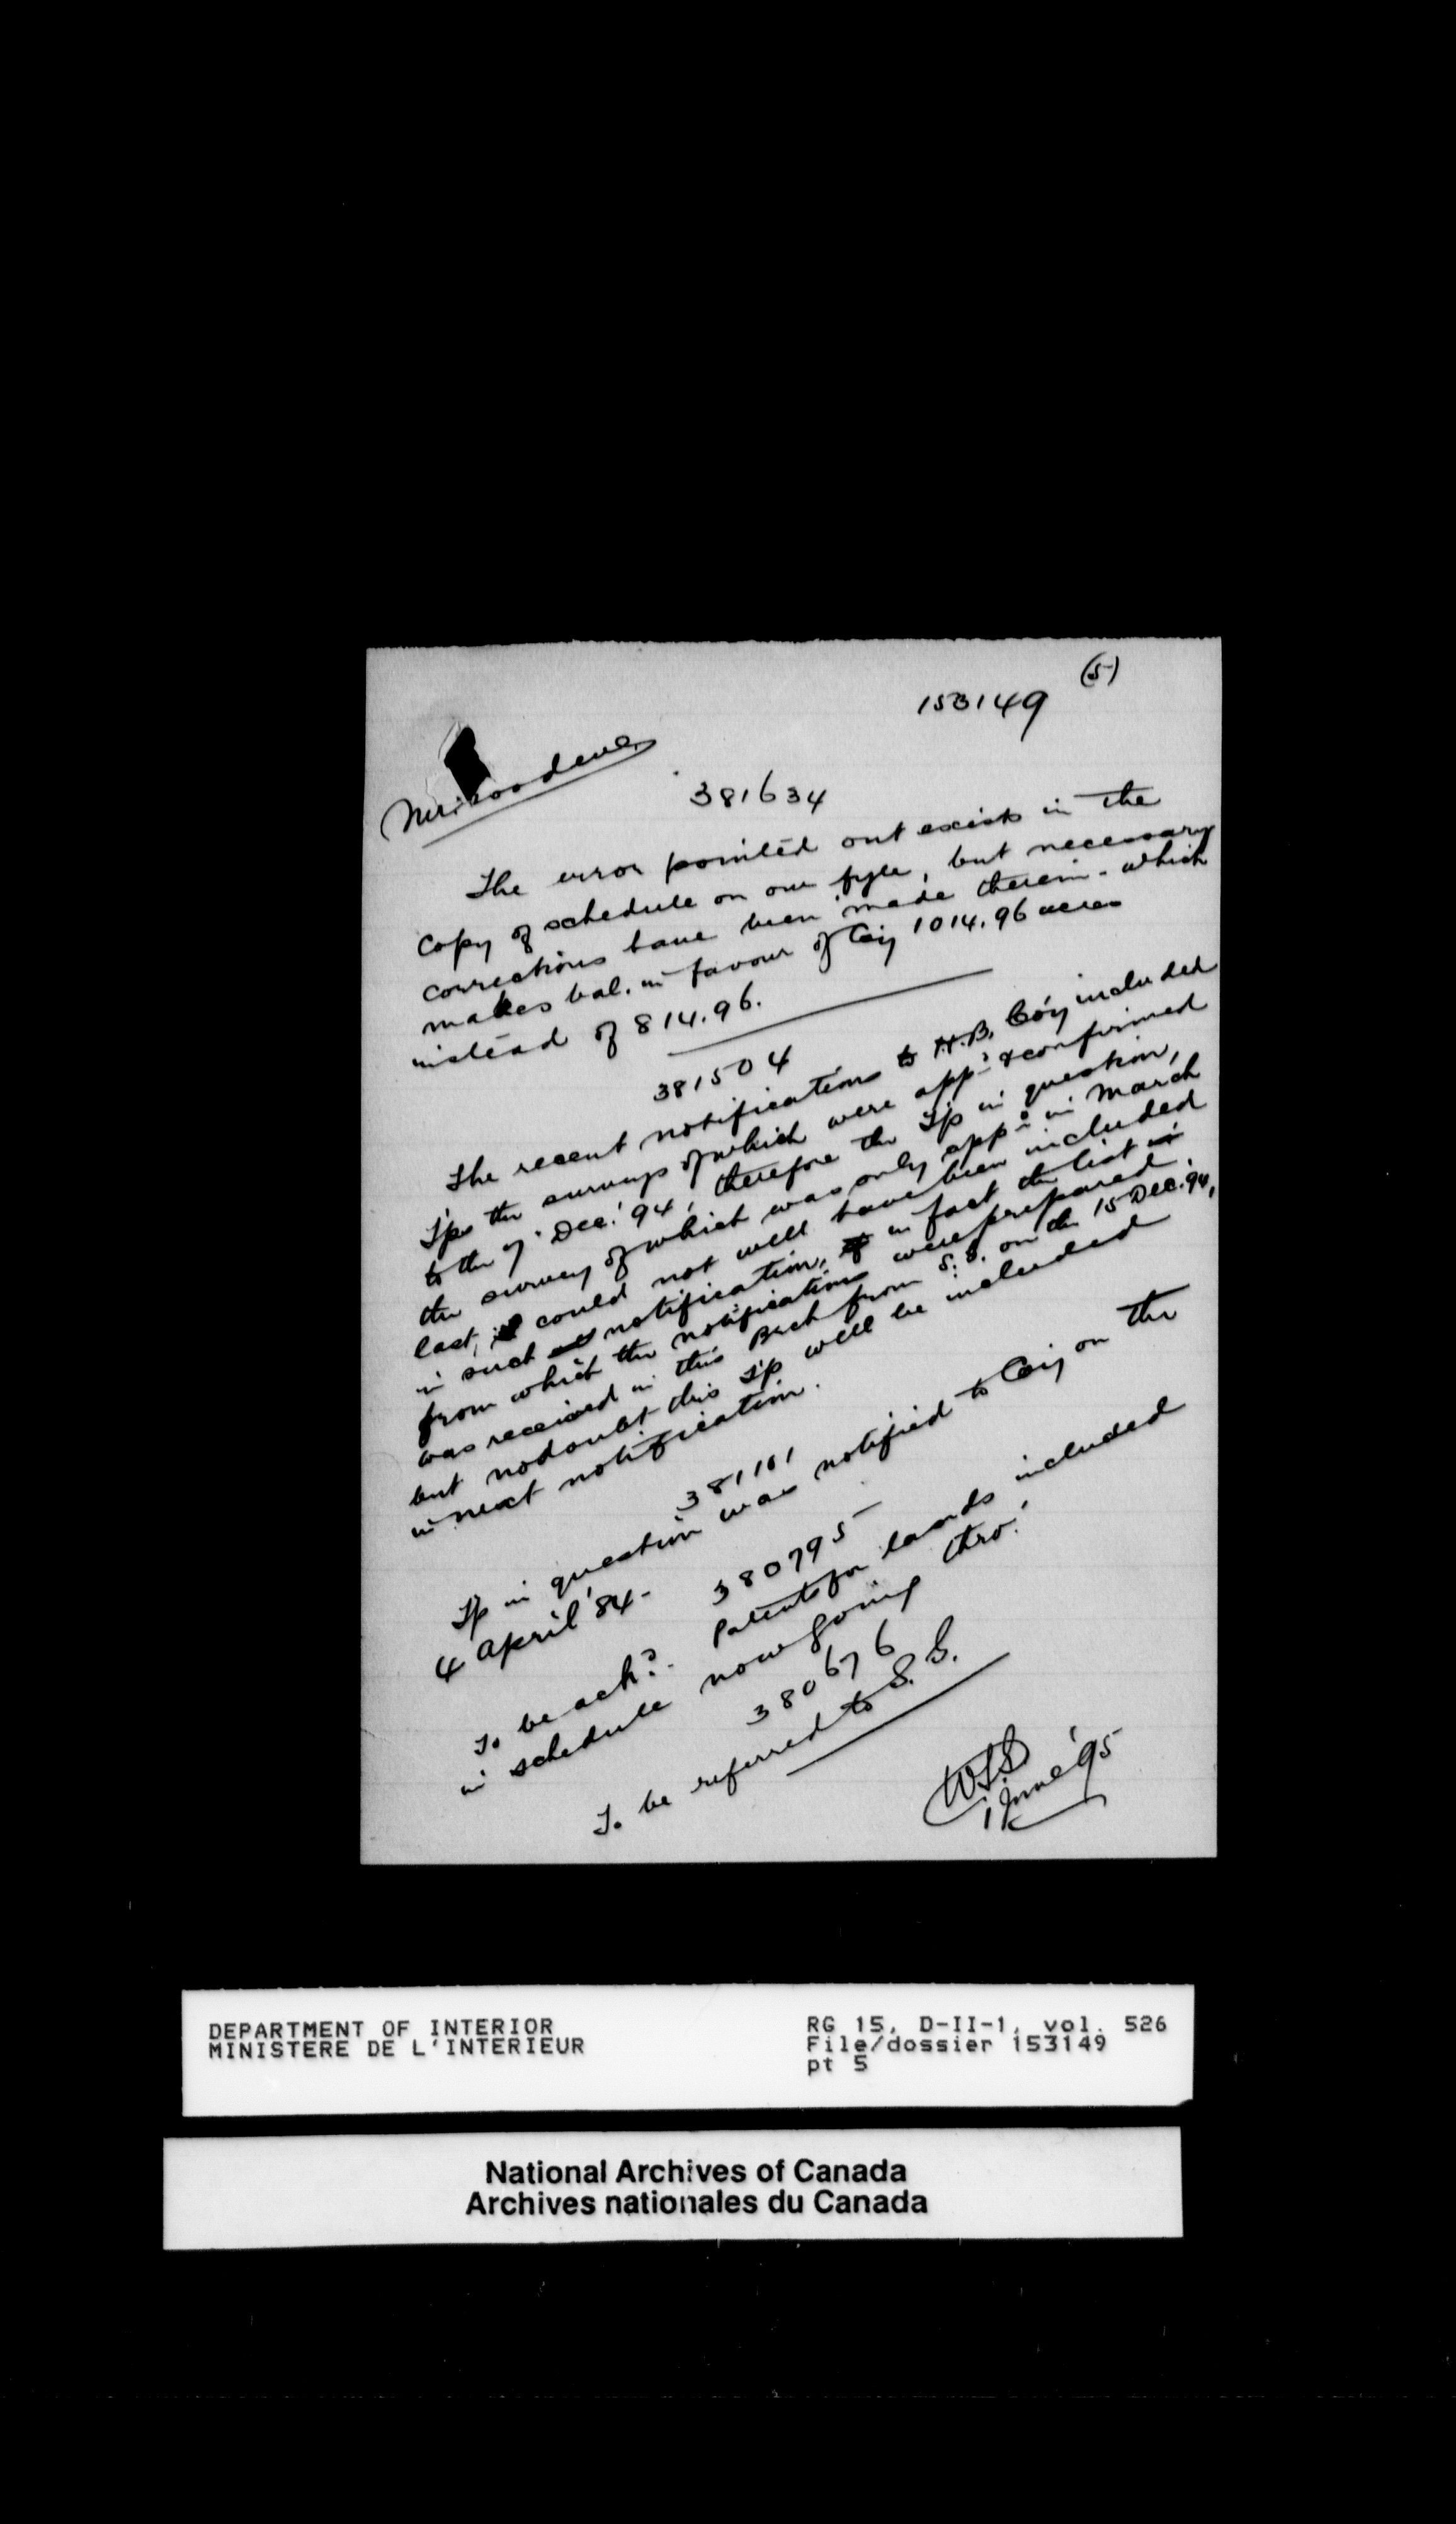 (5)
153149
381634
The error pointed out exists in the
copy of schedule on our fyle, but necessary
corrections have been made therein - which
makes bal. in favour of Coy 1014.96 acres
instead of 814.96.
381504
The recent notifications to H.B. Coy included
Tps the surveys of which were appd & confirmed
to the 7 Dec. '94, therefore the Tp in question,
the survey of which was only appd in March
last, could not well have been included
in such notification, in fact the list
from which the notifications were prepared
was received in this Brch from S.G. on the 15 Dec. 94,
but no doubt this Tp will be included
in next notification.
381101
Tp in question was notified to Coy on the
4 April '84 -
380795
To be ackd. Patents for lands included
in schedule now going thro'.
380676
To be referred to S.G.
1 June '95
DEPARTMENT OF INTERIOR
MINISTERE DE L'INTERIEUR
RG 15, D-II-1, vol. 526
File/dossier 153149
pt 5
National Archives of Canada
Archives nationales du Canada